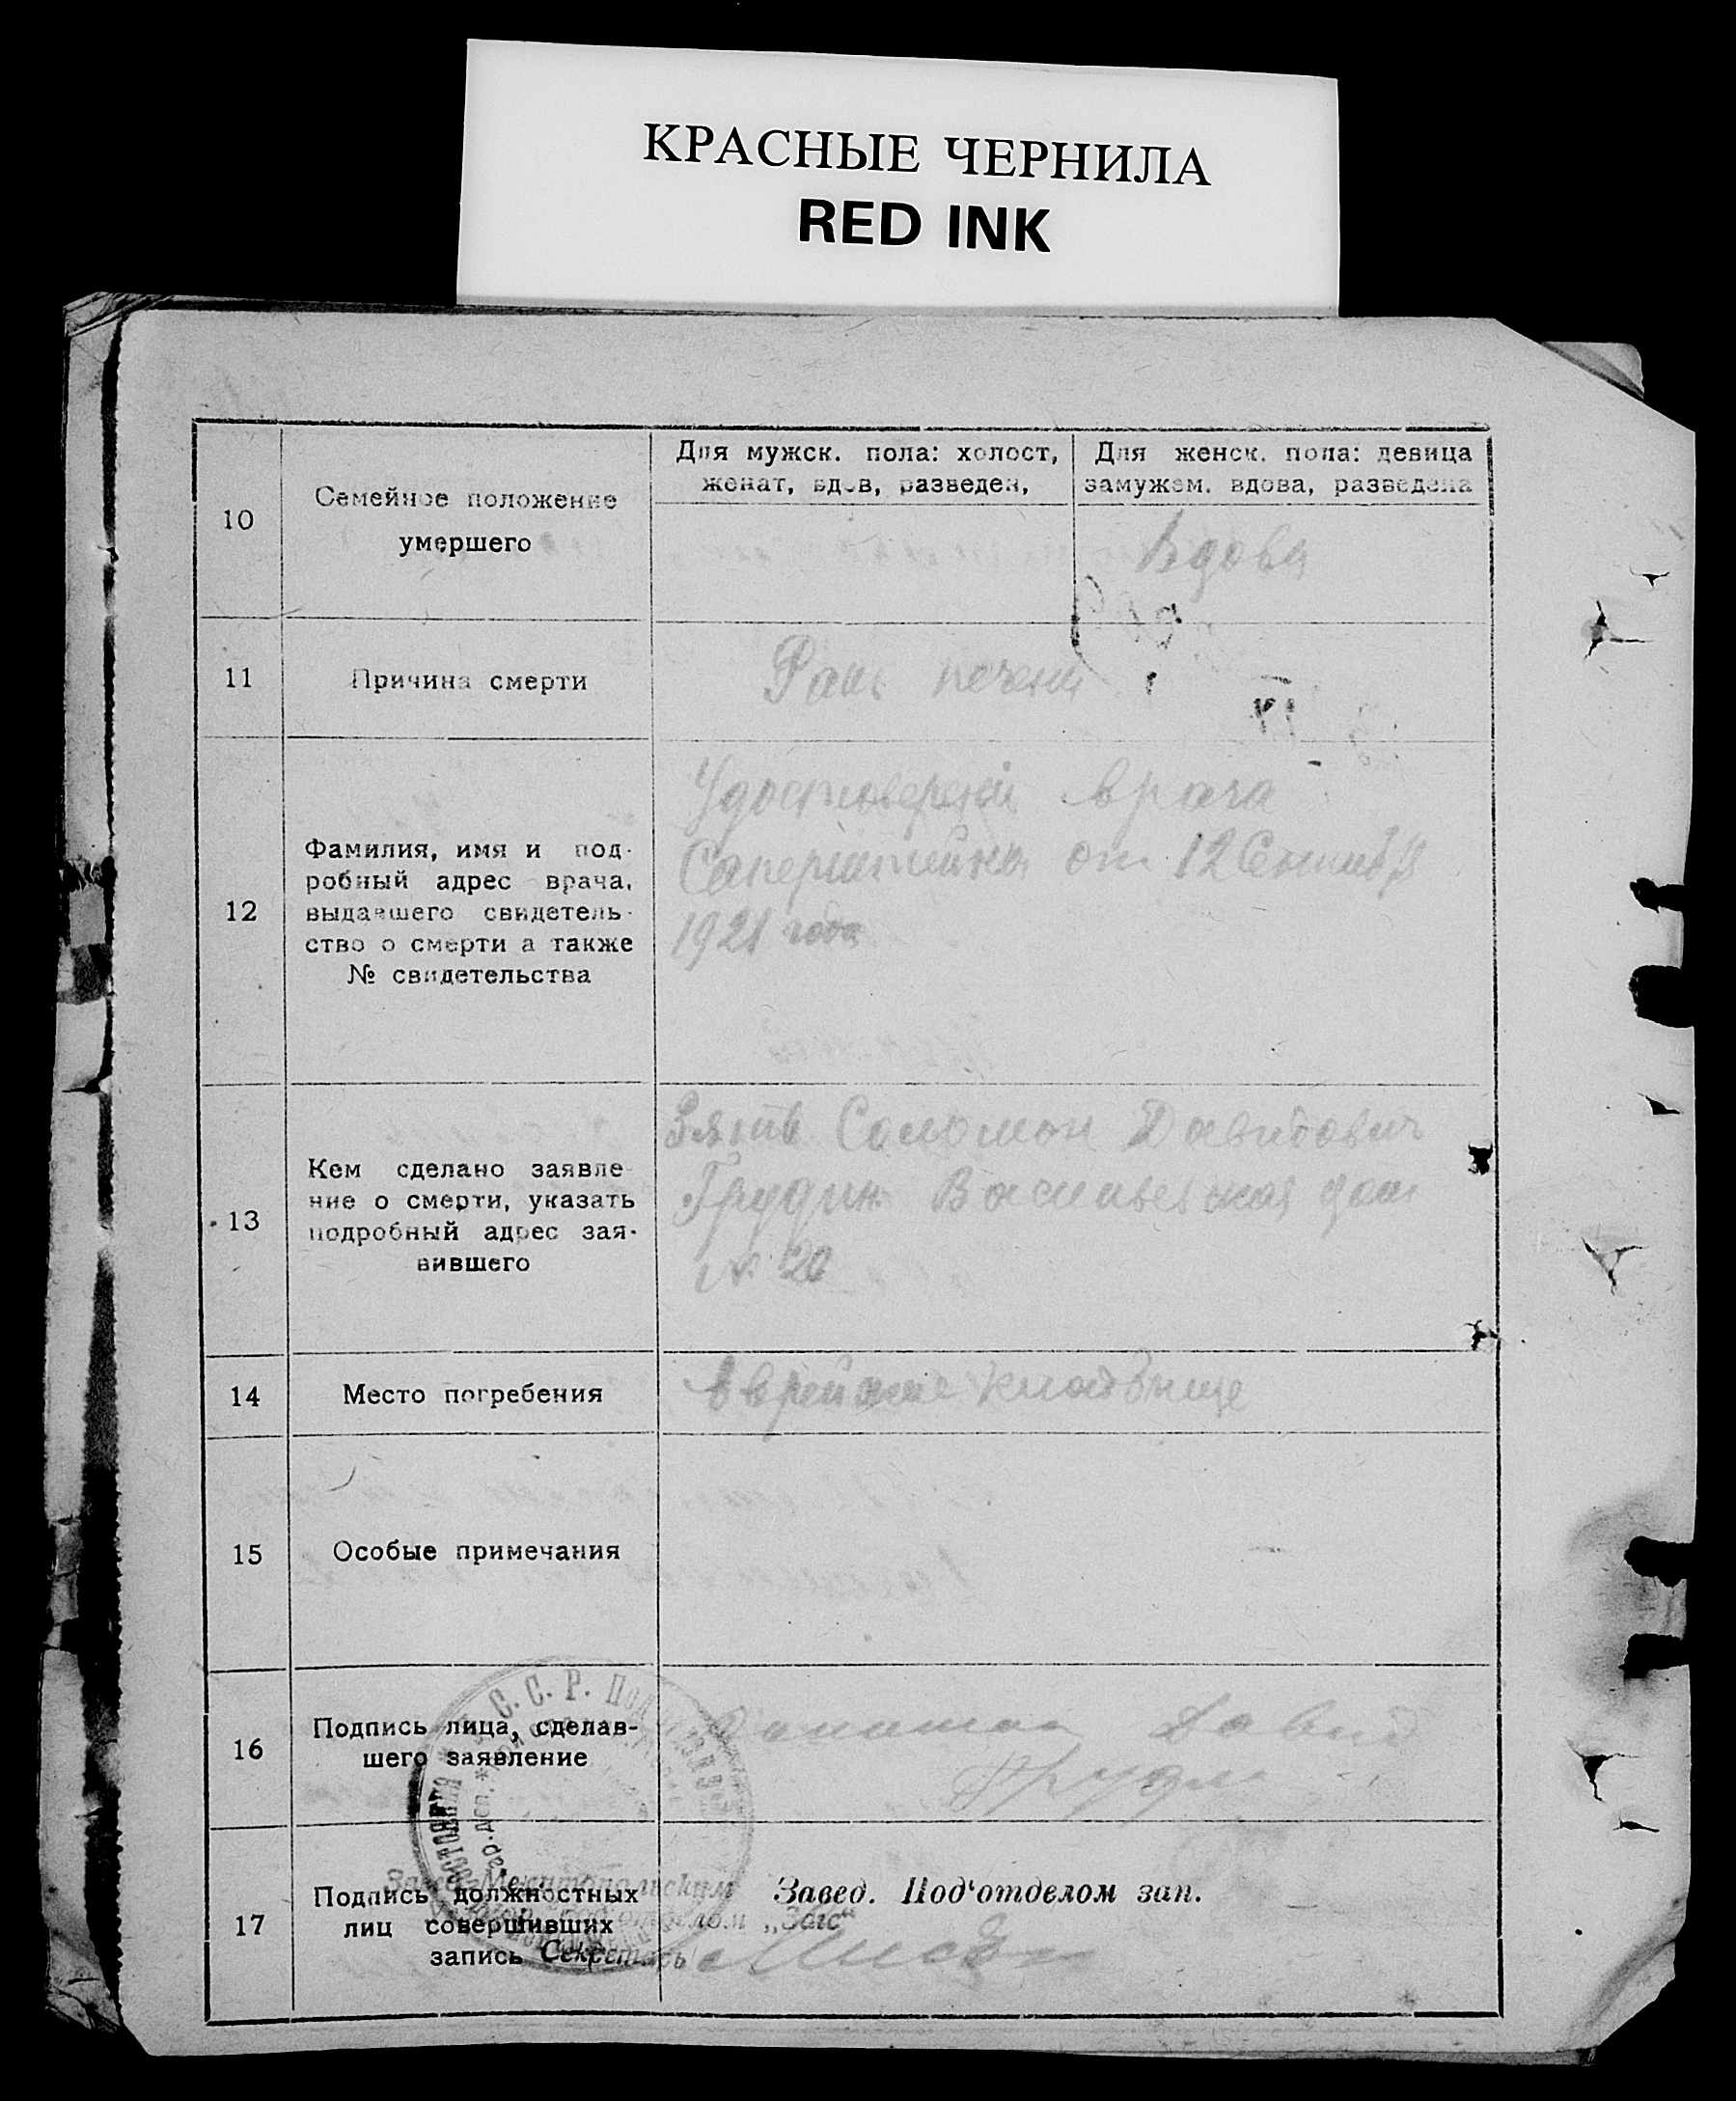 КРАСНЫЕ ЧЕРНИЛА
RED INK
10
Семейное положение
умершего
Для мужск. пола: холост,
женат, вдов, разведен,
Для женск. пола: девица
замужем. вдова, разведена
Вдова
11
Причина смерти
Рак печени
12
Фамилия, имя и под-
робный адрес врача,
выдавшего свидетель-
ство о смерти а также
№ свидетельства
врача
от 12
1921 года
13
Кем сделано заявле-
ние о смерти, указать
подробный адрес зая-
вившего
Зять Соломон Давидович
Грудин Васильевская дом
№ 20
14
Место погребения
кладбище
15
Особые примечания
16
Подпись лица, сделав-
шего заявление
Давид
С. С. Р.
17
Подпись должностных
лиц совершивших
запись
Завед. Мелитопольским
отделом „Загс“
Секретарь
Завед. Под‘отделом зап.